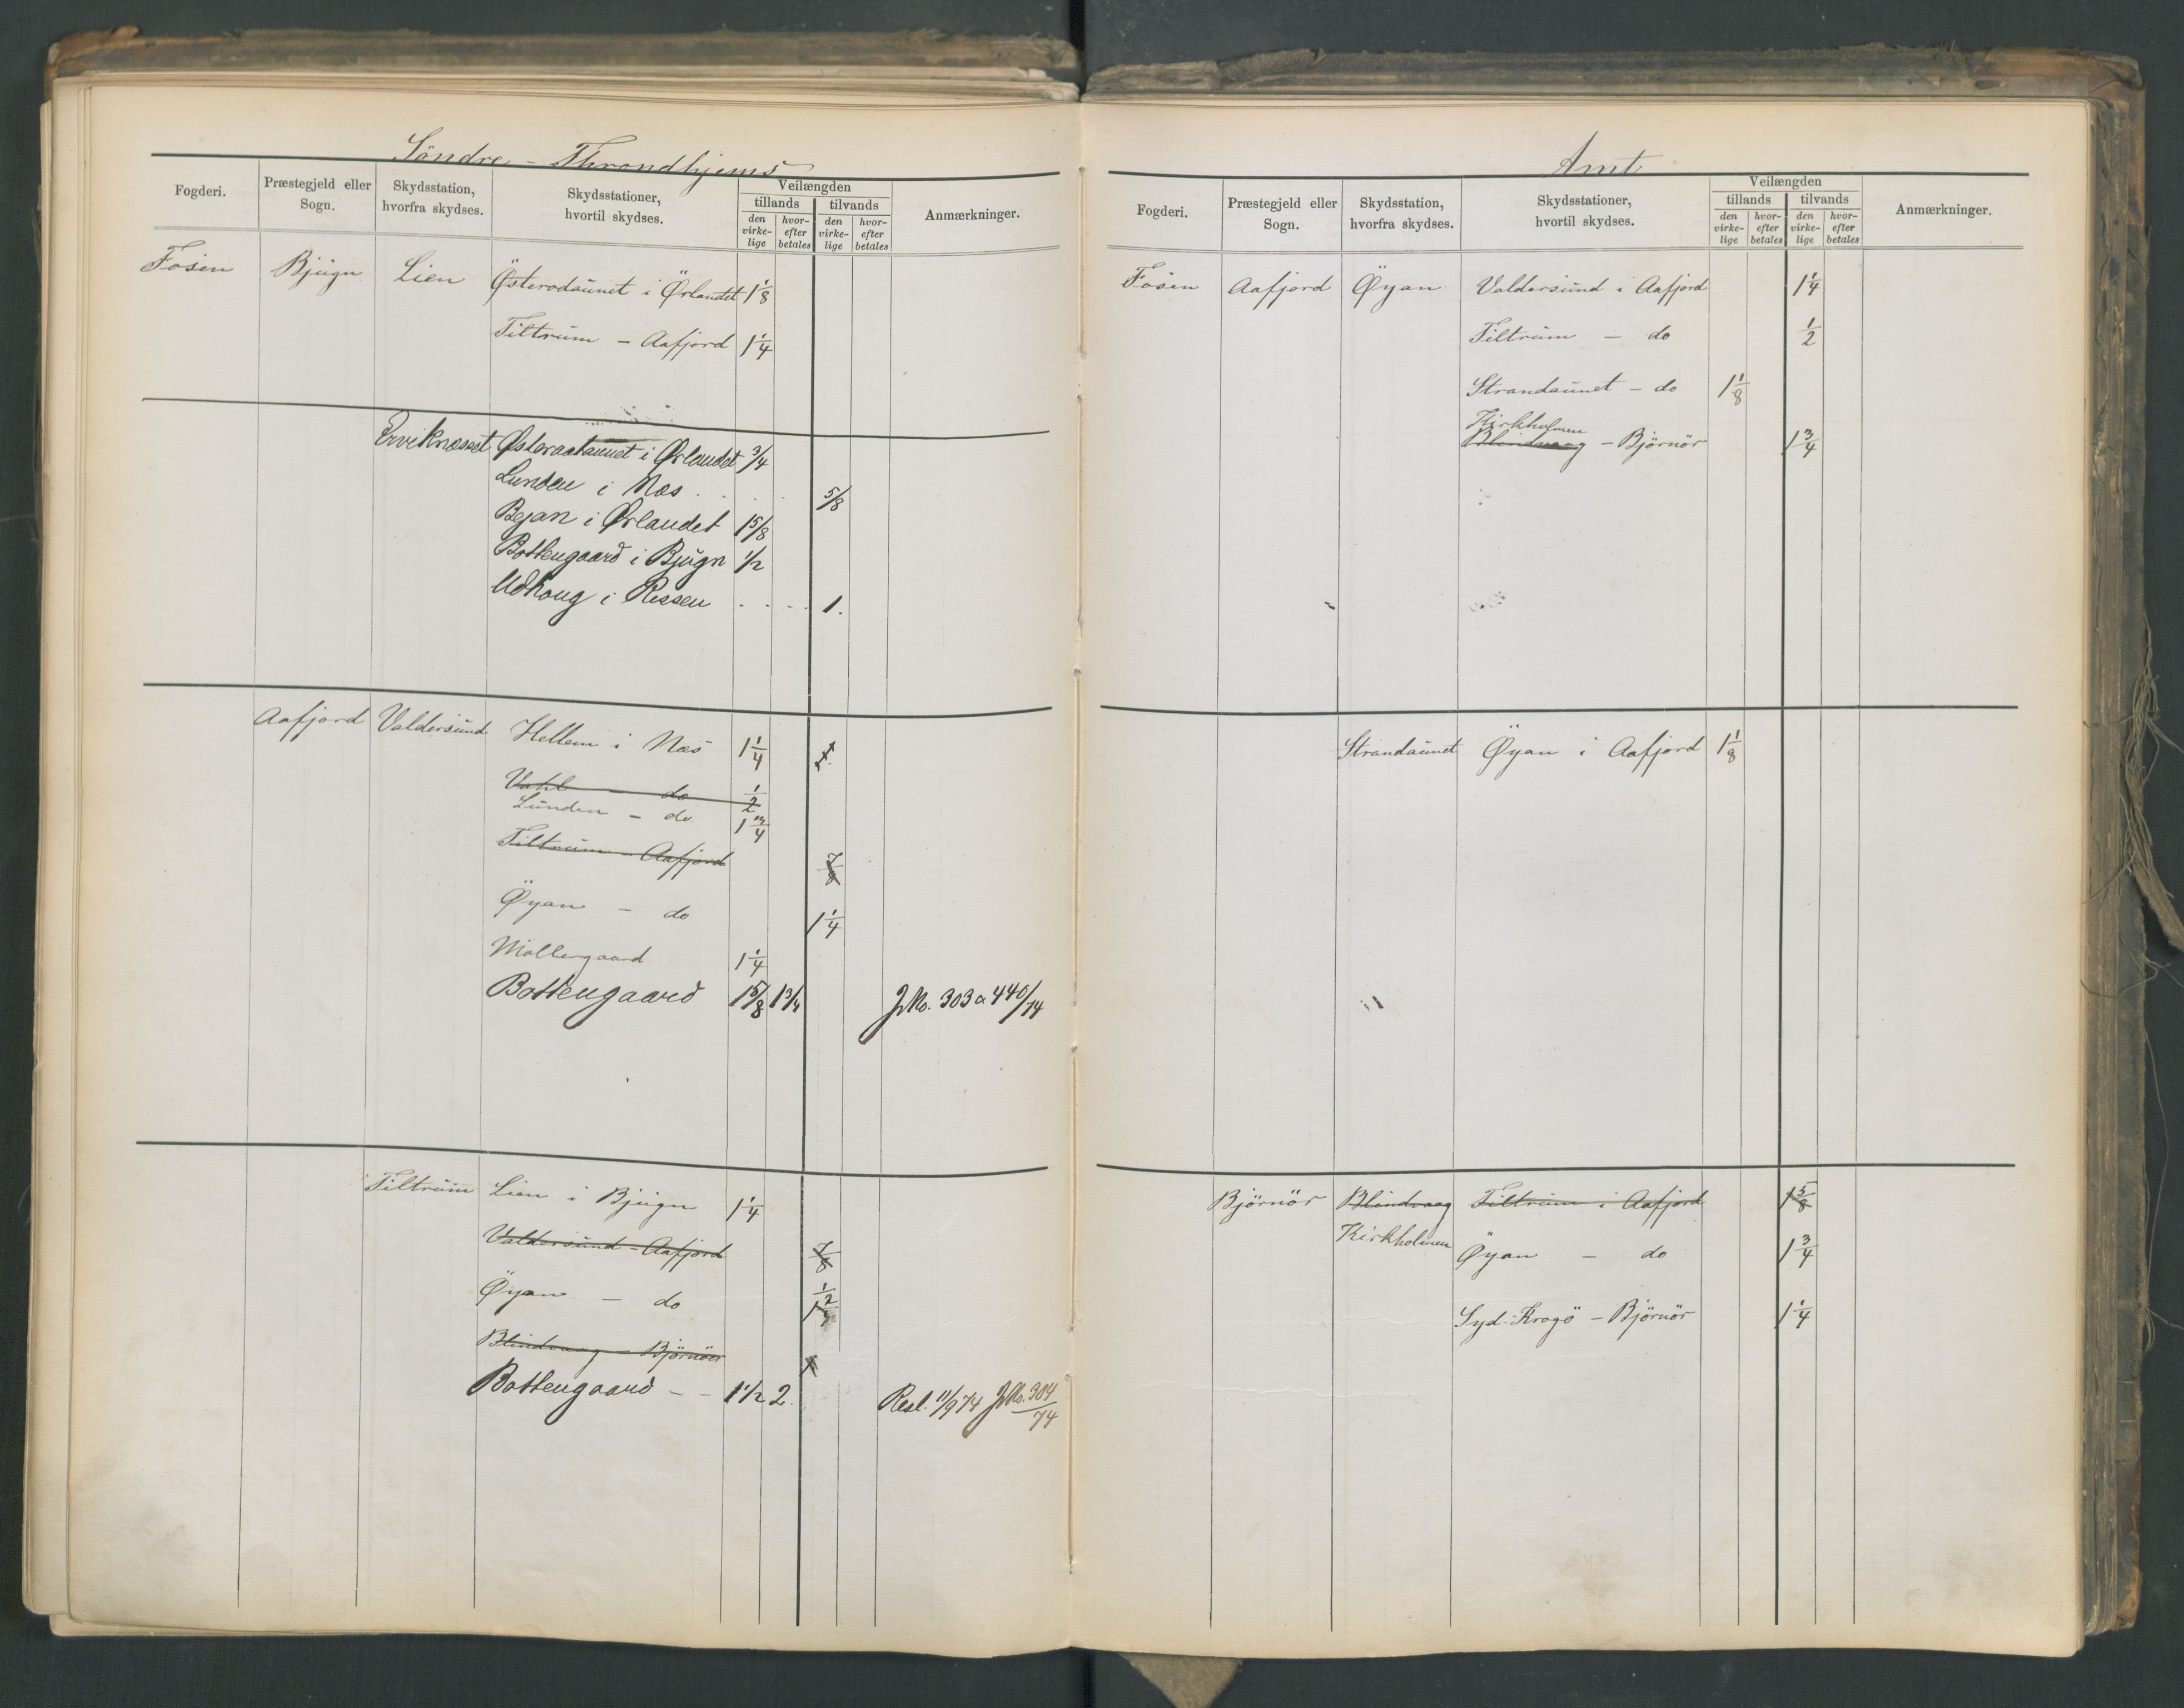 Söndre - Throndhjems
Fogderi. Præstegjeld eller Sogn. Skydsstation, hvorfra skydses. Skydsstationer, hvortil skydses. Veilængden Anmærkninger.
tillands tilvands
den virkelige hvorefter betales den virkelige hvorefter betales
Fosen Bjugn Lien Österodaunet i Ørlandet 1 1/8
Tiltrum - Aafjord 1 1/4
Erviknæsset Østeraataunet i Ørlandet 3/4
Lunden i Næs . . . 5/8
Bejan i Ørlandet 1 5/8
Bottengaard i Bjugn 1/2
Udhoug i Rissen . . . . 1.
Aafjord Valdersund Hellem i Næs 1 1/4
Vahl - do 1/2
Lunden - do 1 3/4
Tiltrum - Aafjord 7/8
Öyan - do 1 1/4
Mollergaard 1 1/4
Bottengaard 1 5/8 1 3/4 JNo. 303 a 440/74
Tiltrum Lien i Bjugn 1 1/4
Valdersund - Aafjord 7/8
Öyan - do
Blindvaag - Björnör
Bottengaard - - 1 1/2 2. Resl. 11/9 74 JNo. 384/74
Amt
Fogderi. Præstegjeld eller Sogn. Skydsstation, hvorfra skydses. Skydsstationer, hvortil skydses. Veilængden Anmærkninger.
tillands tilvands
den virkelige hvorefter betales den virkelige hvorefter betales
Fosen Aafjord Öyan Valdersund i Aafjord 1 1/4
Tiltrum - do 1/2
Strandaunet - do 1 1/8
Kirkholmen
Blindvaag - Björnör 1 3/4
Strandaunet Öyan i Aafjord 1 1/8
Björnör Blindvaag Tiltrum i Aafjord 1 5/8
Kirkholmen Öyan - do 1 3/4
Syd: Krogö - Björnör 1 1/4